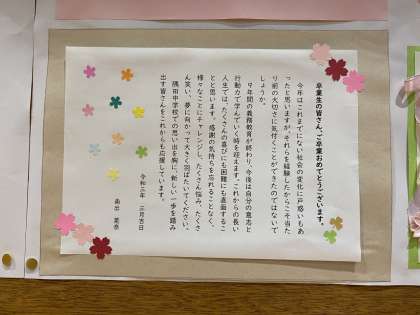 卒業生の皆さん、ご卒業おめでとうございます。
今年はこれまでにない社会の変化に戸惑いもあ
ったと思いますが、それらを経験したからこそ当た
り前の大切さに気付くことができたのではないで
しょうか。
9年間の義務教育が終わり、今後は自分の意志と
行動力で学んでいく時を迎えます。これからの長い
人生では、たくさんの喜びにも困難にも直面するこ
とと思います。感謝の気持ちを忘れることなく、
様々なことにチャレンジし、たくさん悩み、たくさ
ん笑い、夢に向かって大きく羽ばたいてください。
隅田中学校での思い出を胸に、新しい一歩を踏み
出す皆さんをこれからも応援しています。
令和三年 三月吉日